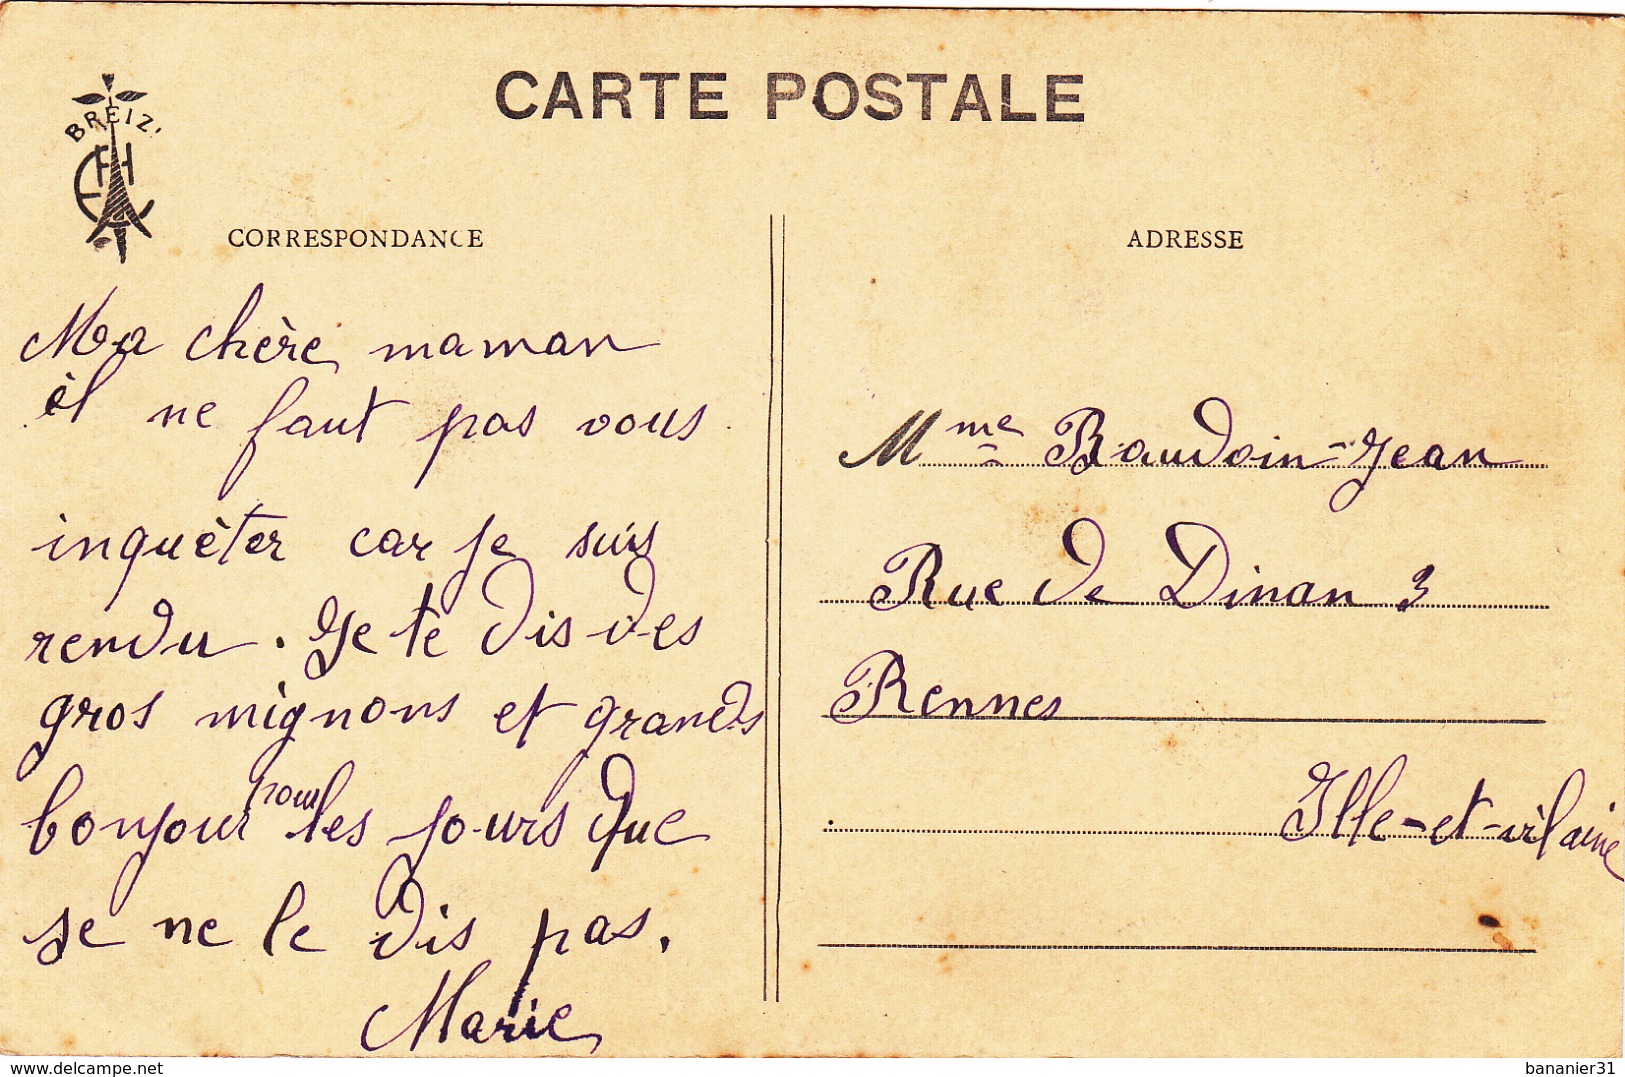 CARTE POSTALE
BREIZ
CORRESPONDANCE
Ma chère maman
il ne faut pas vous
inquèter car je suis
rendu. Je te dis des
gros mignons et grands
bonjour pour les jours que
je ne le dis pas.
Marie
ADRESSE
Mme Baudoin-Jean
Rue de Dinan 3
Rennes
Ille-et-vilaine
delcampe.net
bananier31